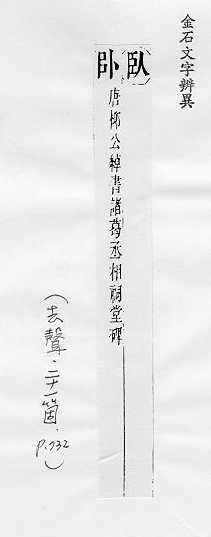 金石文字辨異
臥
卧 唐柳公綽書諸葛丞相祠堂碑
（去聲．二十一箇．P.932）